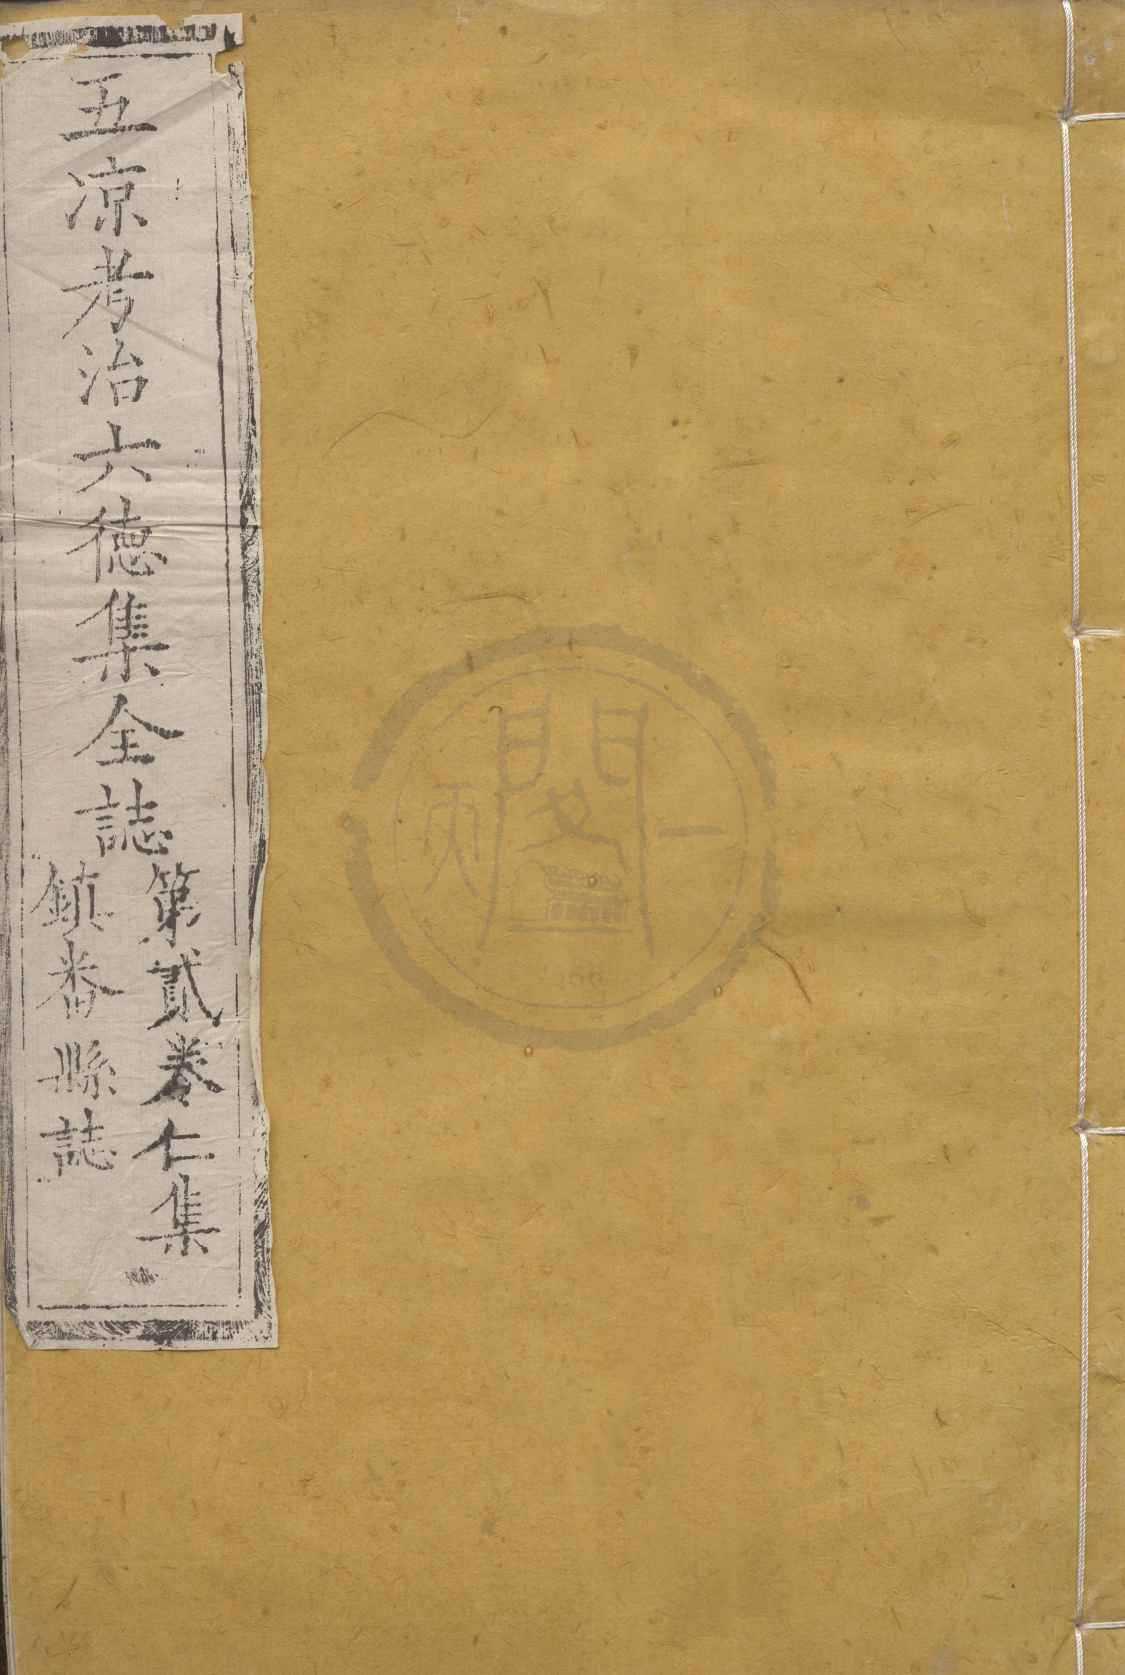 五凉考治六德集全誌
第貳卷仁集
鎮番縣誌